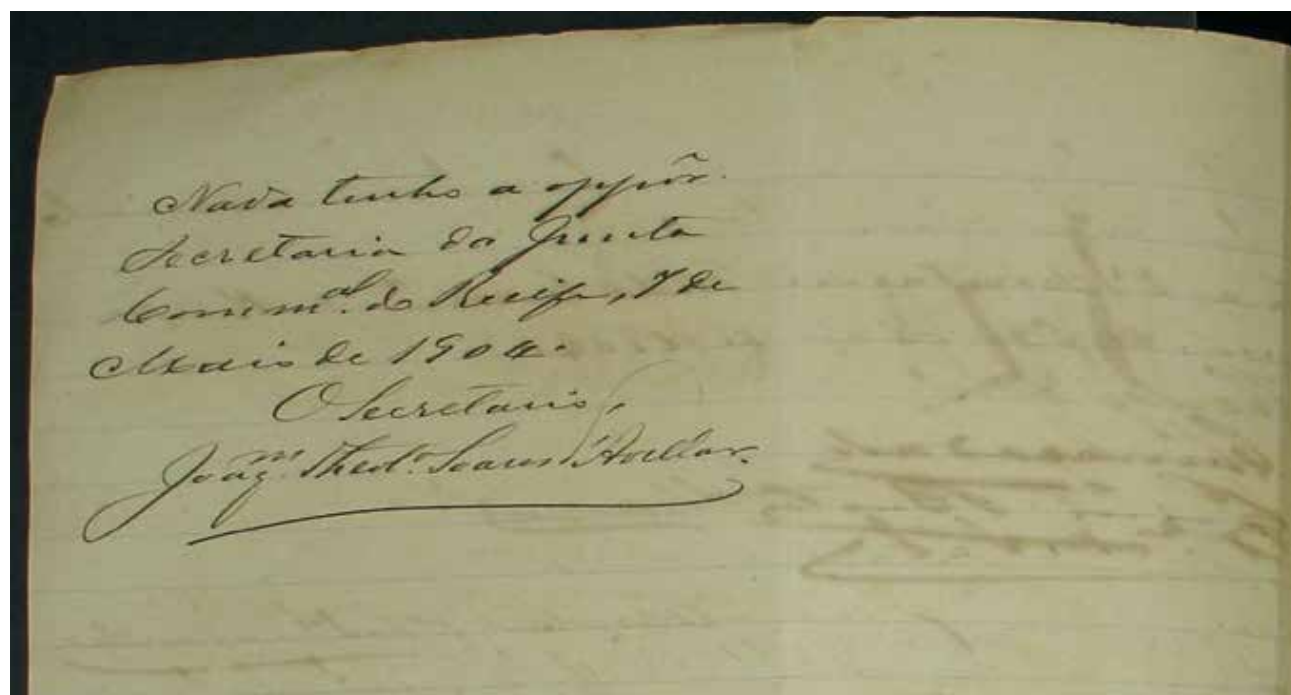 Nada tenho a oppôr.
Secretaria da Junta
Comm.al do Recife, 7 de
Maio de 1904.
O Secretario,
Joaq.m Theot.o Soares d'Avellar.